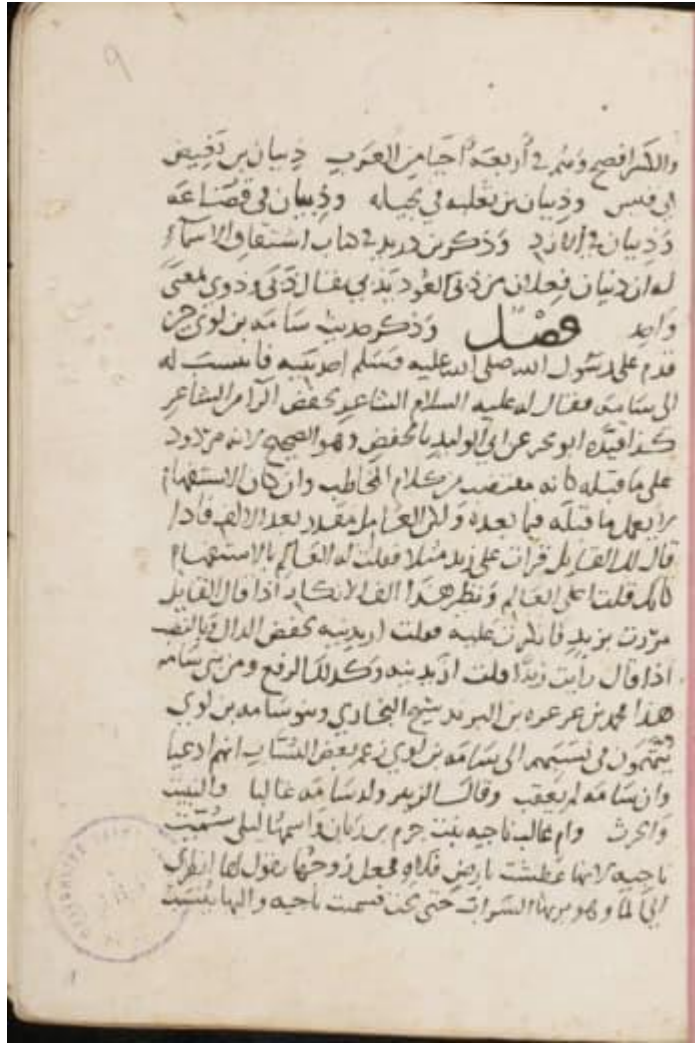 ٩
والكسر افصح وهم في أربعة أحيا من العرب ذبيان بن بغيض
في قيس وذبيان بن ثعلبه في بجيله وذبيان في قضاعه
وذبيان في الازد وذكر بن دريد في كتاب اشتقاق الاسماء
له ان ذبيان فعلان من ذبى العود يذبى يقال ذبى وذوى بمعنى
واحد فصل وذكر حديث سامه بن لوى حين
قدم على رسول الله صلى الله عليه وسلم احد بنيه فانتسب له
الى سامه فقال له عليه السلام الشاعر بخفض الرا من الشاعر
كذا قيده ابو بحر عن ابى الوليد بالخفض وهو الصحيح لانه مردود
على ما قبله كانه مقتضب من كلام المخاطب وان كان الاستفهام
لا يعمل ما قبله فيما بعده ولكن العامل مقدر بعد الالف فاذا
قال لك القايل قرات على زيد مثلا فقلت له العالم بالاستفهام
كانك قلت اعلى العالم ونظير هذا الف الانكار اذا قال القايل
مررت بزيد فانكرت عليه فقلت ازيدنيه بخفض الدال وبالنصب
اذا قال رايت زيدا قلت ازيدنيه وكذلك الرفع ومن بنى سامه
هذا محمد بن عرعره بن البرند شيخ البخاري وبنو سامه بن لوي
في نسبهم الى سامه بن لوي زعم بعض النساب انهم ادعيا
وان سامه لم يعقب وقال الزبير ولد سامه غالبا والنبيت
والحرث وام غالب ناجيه بنت جرم بن زبان واسمها ليلى سميت
ناجيه لانها عطشت بارض فلاه فجعل زوجها يقول لها انظرى
الى الما وهو يريها السراب حتى نجت فسميت ناجيه واليها ينسب